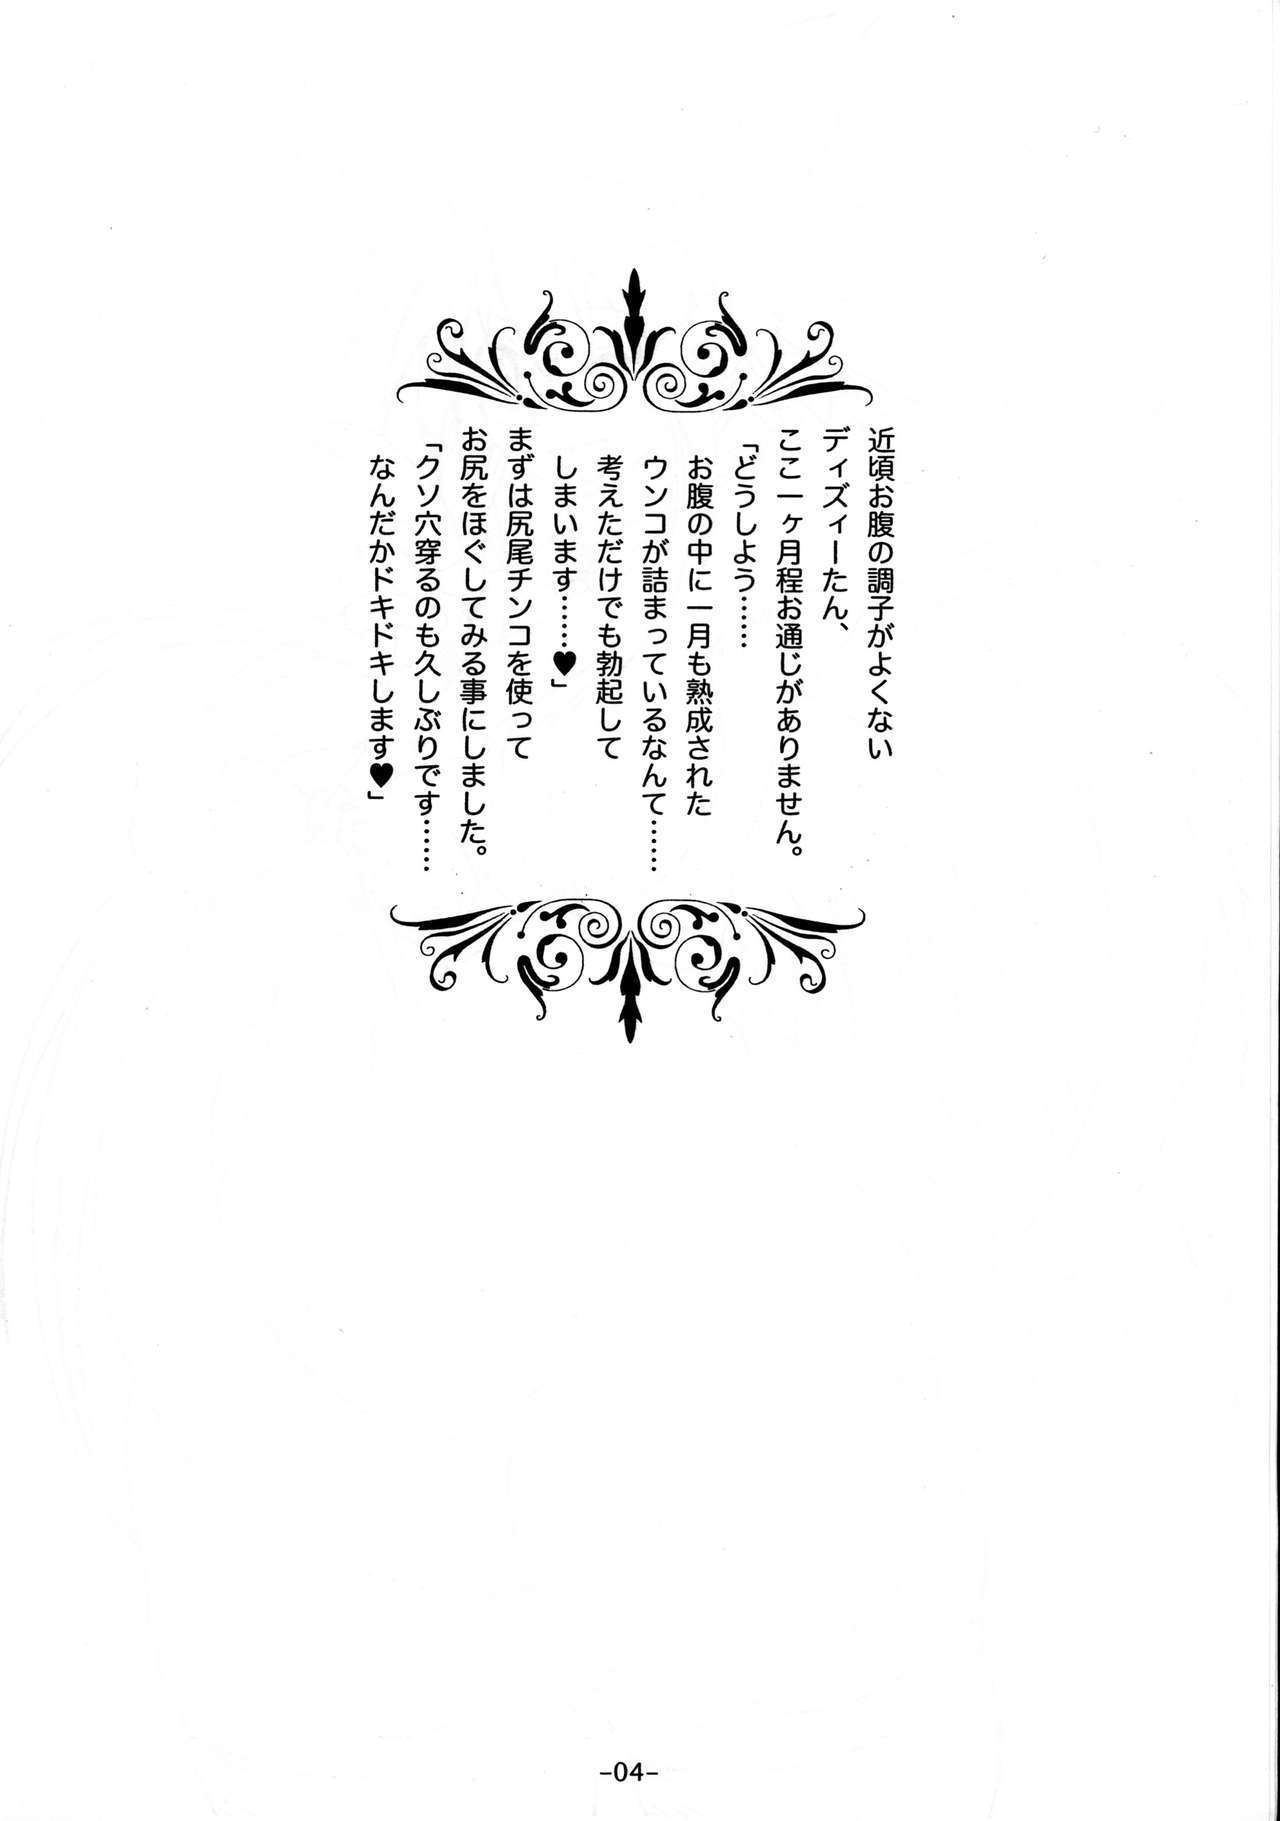 近頃お腹の調子がよくない
ディズィーたん、
ここ一ヶ月程お通じがありません。
「どうしよう……
お腹の中に一月も熟成された
ウンコが詰まっているなんて……
考えただけでも勃起して
しまいます……♥」
まずは尻尾チンコを使って
お尻をほぐしてみる事にしました。
「クソ穴穿るのも久しぶりです……
なんだかドキドキします♥」
-04-